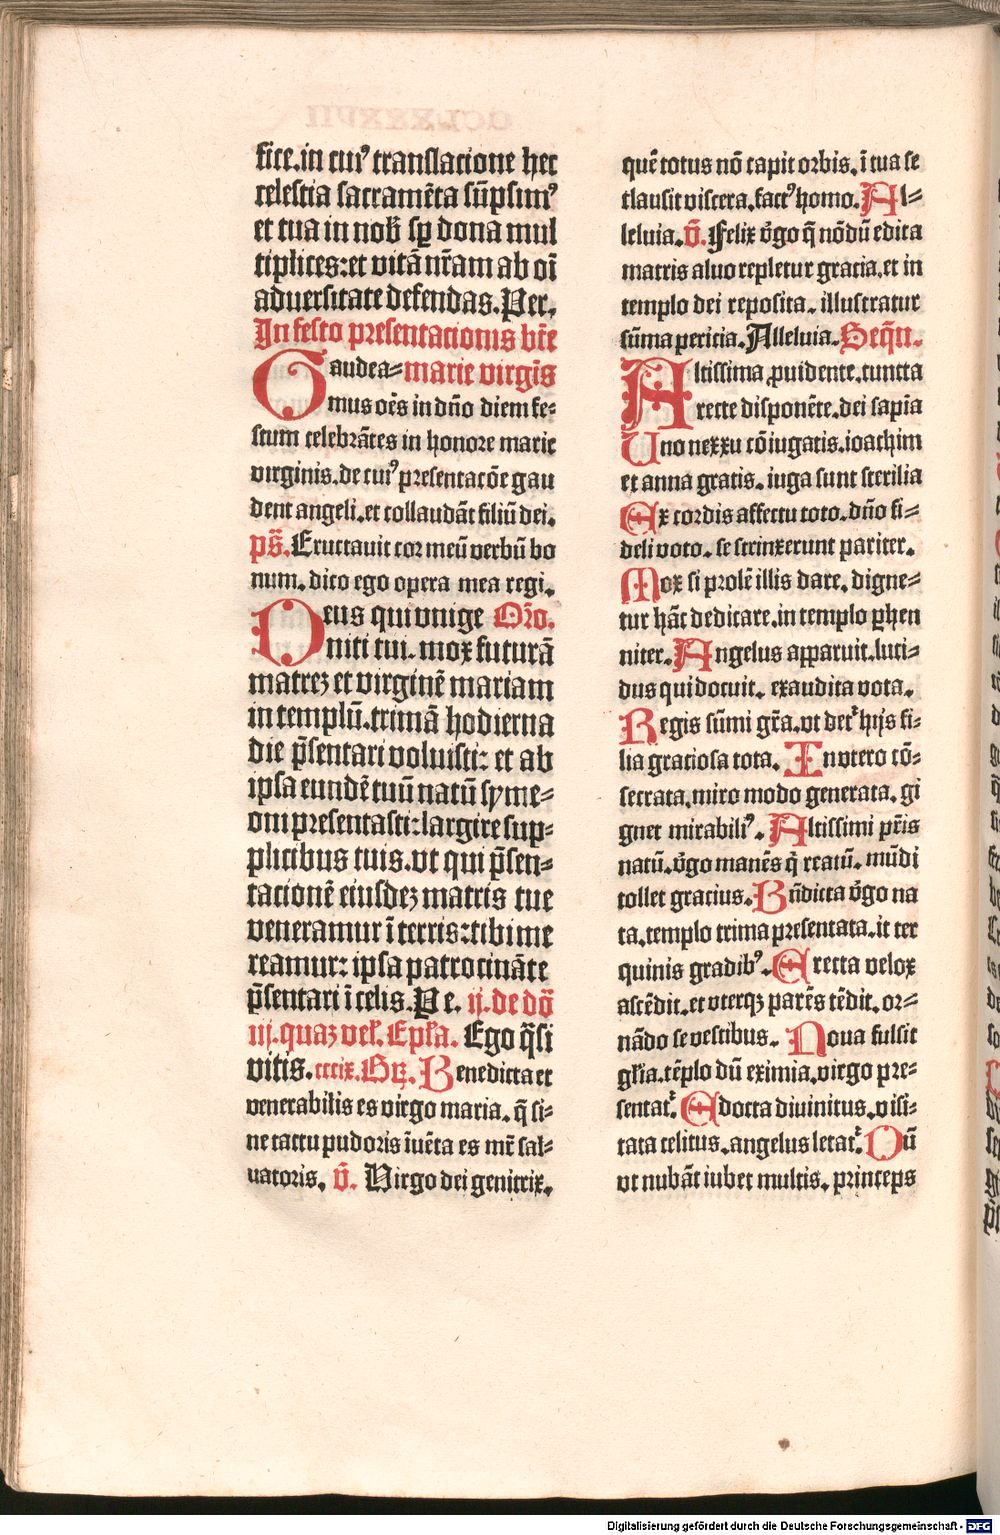 fice.in cui⁹ translacione hec
celestia sacramēta sūpsim⁹
et tua in nob̄ sp̄ dona mul
tiplices:et vitā nr̄am ab oī
aduersitate defendas.Per.
In festo presentacionis bt̄e
Gaudea⸗ marie virgīs
mus oēs in dn̄o diem fe⸗
stum celebrātes in honore marie
virginis.de cui⁹ presentacōe gau
dent angeli.et collaudāt filiū dei.
ps̄. Eructauit cor meū verbū bo
num. dico ego opera mea regi.
Deus qui vnige Or̄o.
niti tui. mox futurā
matreꝫ et virginē mariam
in templū.trimā hodierna
die p̄sentari voluisti: et ab
ipsa eundē tuū natū syme⸗
oni presentasti:largire sup⸗
plicibus tuis.vt qui p̄sen⸗
tacionē eiusdeꝫ matris tue
veneramur ī terris:tibi me
reamur: ipsa patrocināte
p̄sentari ī celis. Pe. ij. de dō
iij.quaꝫ vel̄. Epl̄a. Ego q̄si
vitis. cccix. Gꝶ. Benedicta et
venerabilis es virgo maria. q̄ si⸗
ne tactu pudoris īuēta es mr̄ sal⸗
uatoris. v̄. Virgo dei genitrix.
quē totus nō capit orbis. ī tua se
clausit viscera.fact⁹ homo. Al⸗
leluia. v̄. Felix v̄go q̄ nōdū edita
matris aluo repletur gracia.et in
templo dei reposita. illustratur
sūma pericia. Alleluia. Seq̄n.
Altissima ꝓuidente.cuncta
recte disponēte.dei sapīa
Uno nexxu cōiugatis.ioachim
et anna gratis. iuga sunt sterilia
Ex cordis affectu toto. dn̄o fi⸗
deli voto. se strinxerunt pariter.
Mox si prolē illis dare. digne⸗
tur hāc dedicare.in templo ꝑhen
niter. Angelus apparuit.luci⸗
dus qui docuit. exaudita vota.
Regis sūmi gr̄a.vt det᷑ hijs fi⸗
lia graciosa tota. In vtero cō⸗
secrata.miro modo generata. gi
gnet mirabili⁹. Altissimi pr̄is
natū.v̄go manēs q̄ reatū. mūdi
tollet gracius. Bn̄dicta v̄go na
ta.templo trima presentata.it ter
quinis gradib⁹. Erecta velox
ascēdit.et vterqꝫ parēs tēdit. or⸗
nādo se vestibus. Noua fulsit
gl̄ia.tēplo dū eximia.virgo pre⸗
sentat᷑. Edocta diuinitus.visi⸗
tata celitus.angelus letat᷑. Dū
vt nubāt iubet multis. princeps
Digitalisierung gefördert durch die Deutsche Forschungsgemeinschaft - DFG